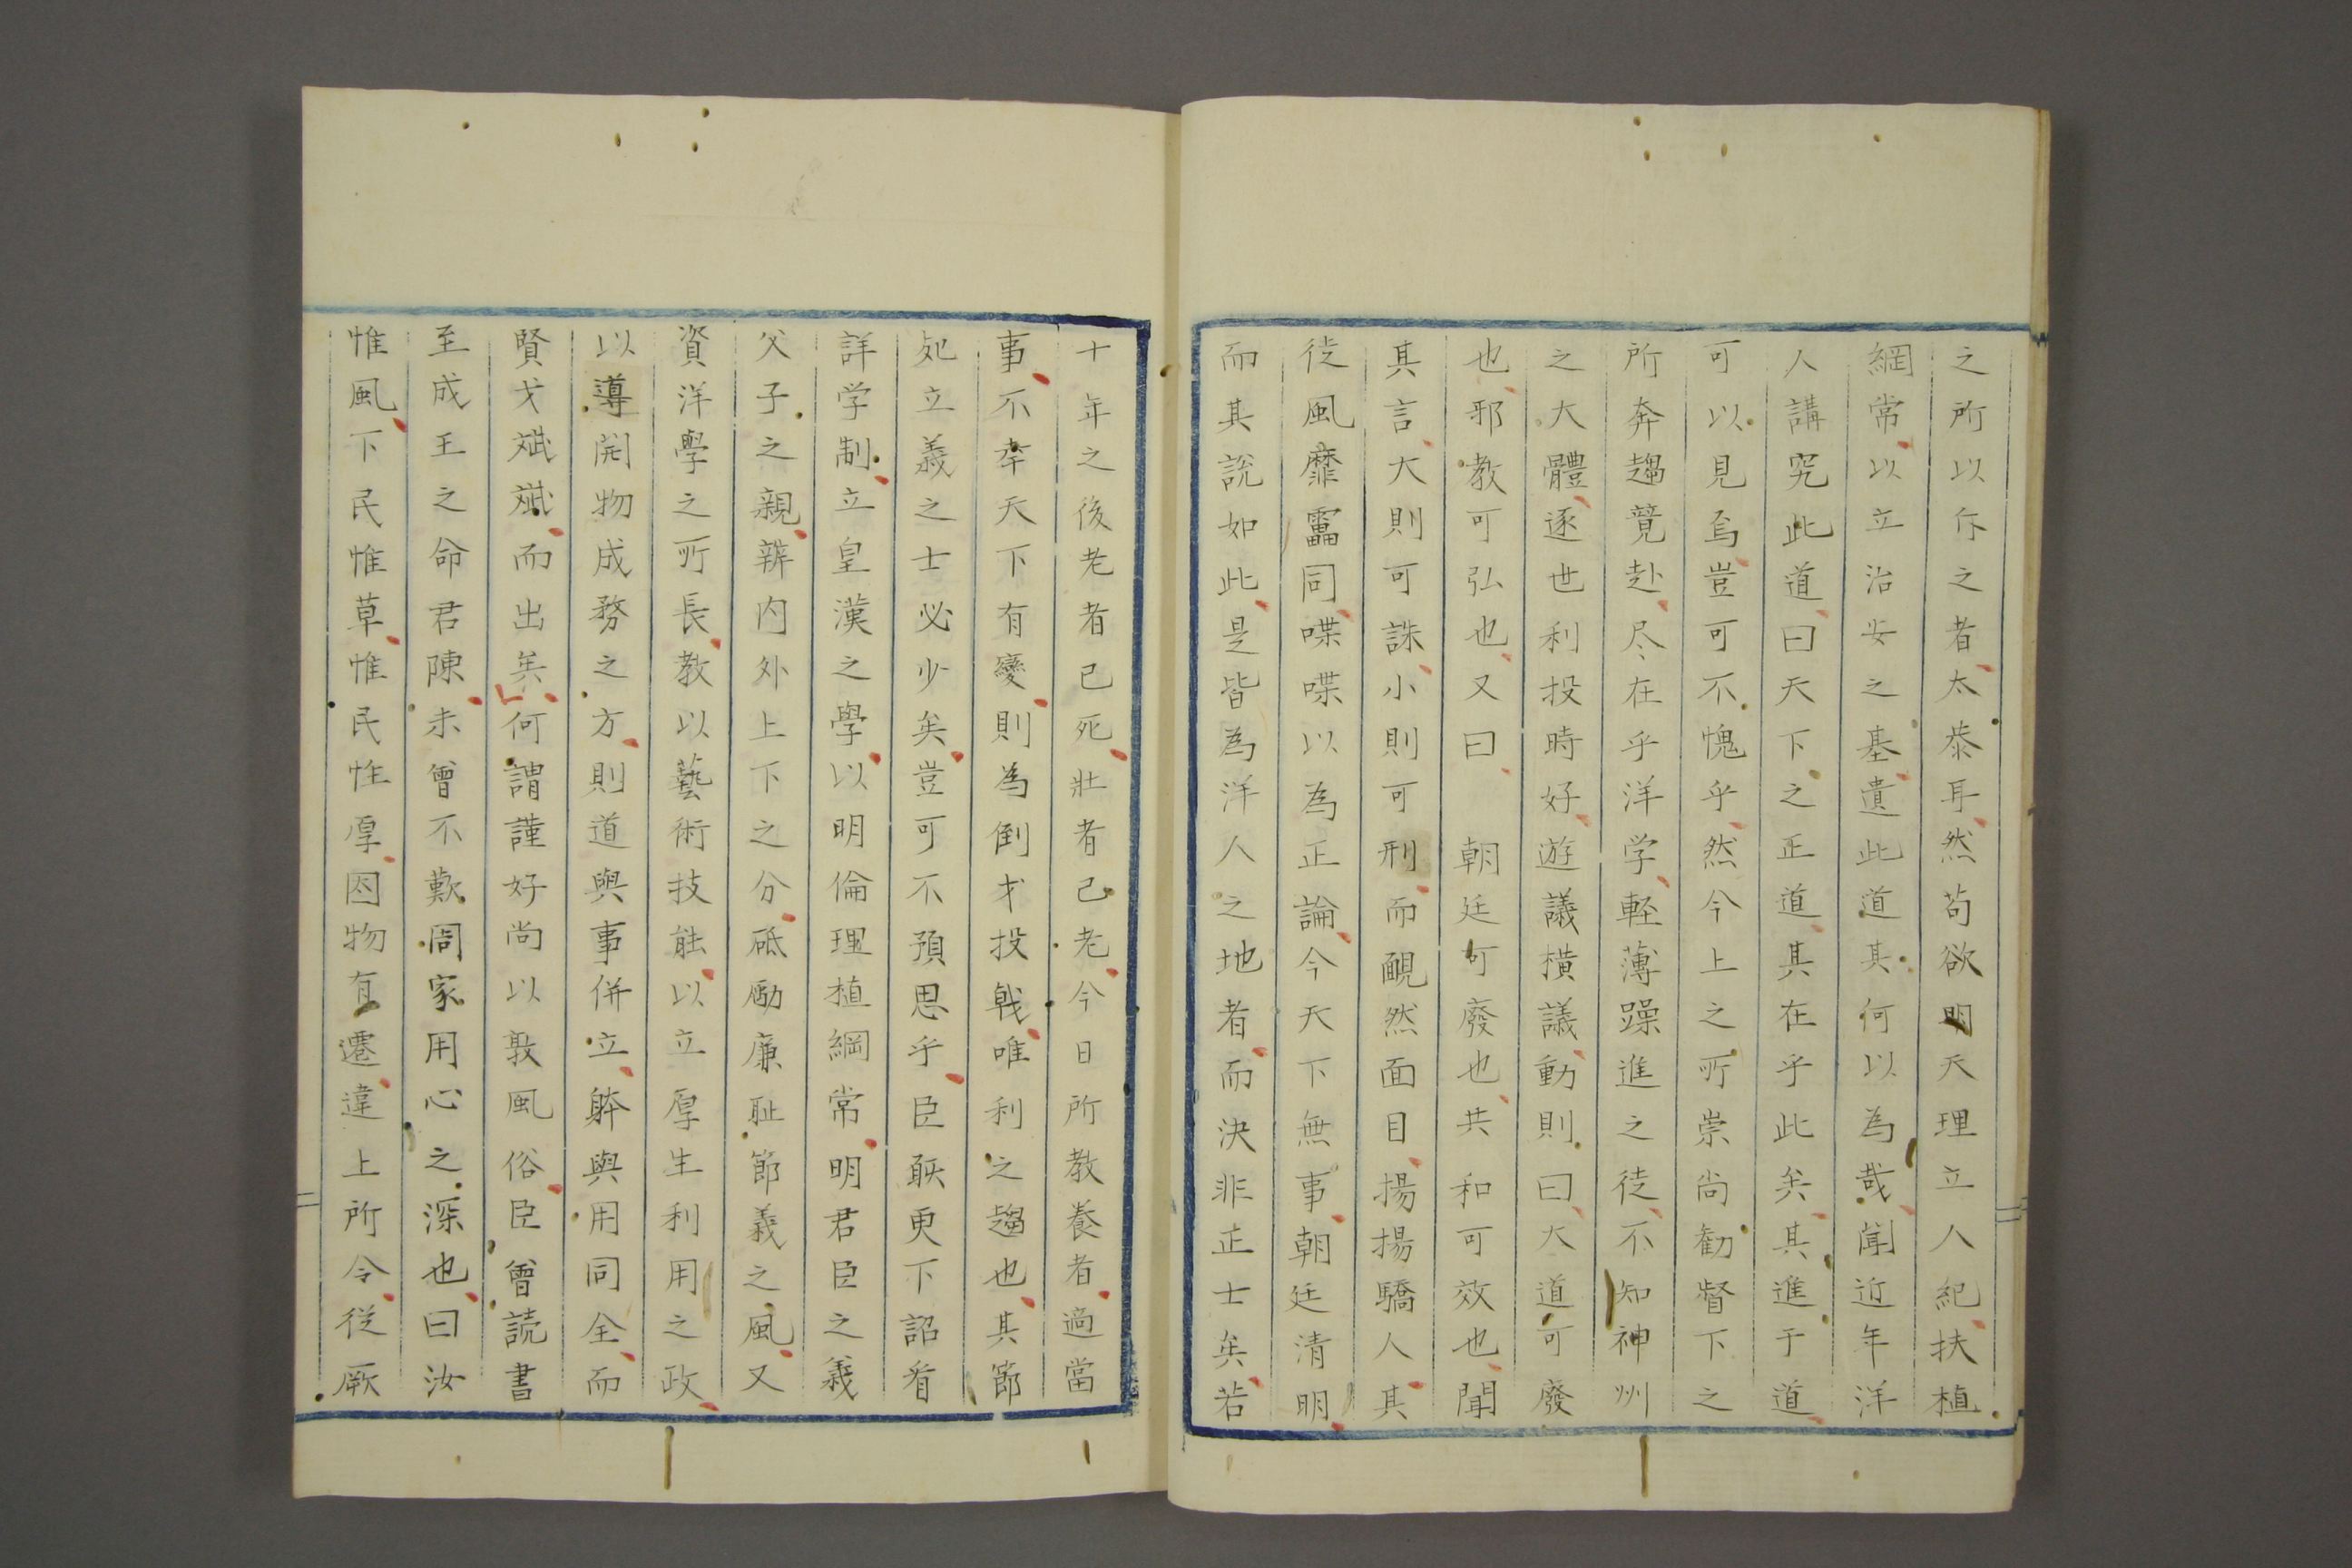 之所以斥之者太恭耳然苟欲明天理立人紀扶植
綱常以立治安之基遺此道其何以為哉聞近年洋
人講究此道曰天下之正道其在乎此矣其進于道
可以見焉豈可不愧乎然今上之所崇尚勧督下之
所奔趨竟赴尽在乎洋学軽薄躁進之徒不知神州
之大體逐世利投時好遊議横議動則曰大道可廢
也邪教可弘也又曰　朝廷可廢也共和可效也聞
其言大則可誅小則可刑而靦然面目揚揚驕人其
徒風靡靁同喋喋以為正論今天下無事朝廷清明
而其説如此是皆為洋人之地者而決非正士矣若
十年之後老者已死壯者已老今日所教養者適當
事不幸天下有變則為倒戈投戟唯利之趨也其節
死立義之士必少矣豈可不預思乎臣敢更下詔旨
詳学制立皇漢之學以明倫理植綱常明君臣之義
父子之親辨内外上下之分砥励廉耻節義之風又
資洋學之所長教以藝術技能以立厚生利用之政
以導開物成務之方則道與事併立躰與用同全而
賢才斌斌而出矣何謂謹好尚以敦風俗臣曾読書
至成王之命君陳未曾不歎周家用心之深也曰汝
惟風下民惟草惟民性厚因物有遷違上所令従厥